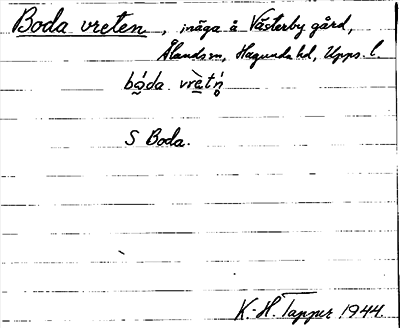 Boda vreten, inäga å Västerby gård,
Ålands sn, Hagunda hd, Upps. l.
bó̰da vrètņ́
S Boda.
K.-H. Tapper 1944.